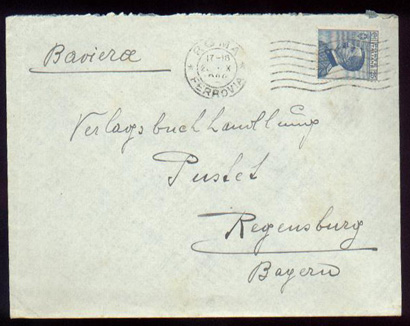 Baviera
ROMA
17-18
FERROVIA
Verlagsbuchhandlung
Pustet
Regensburg
Bayern